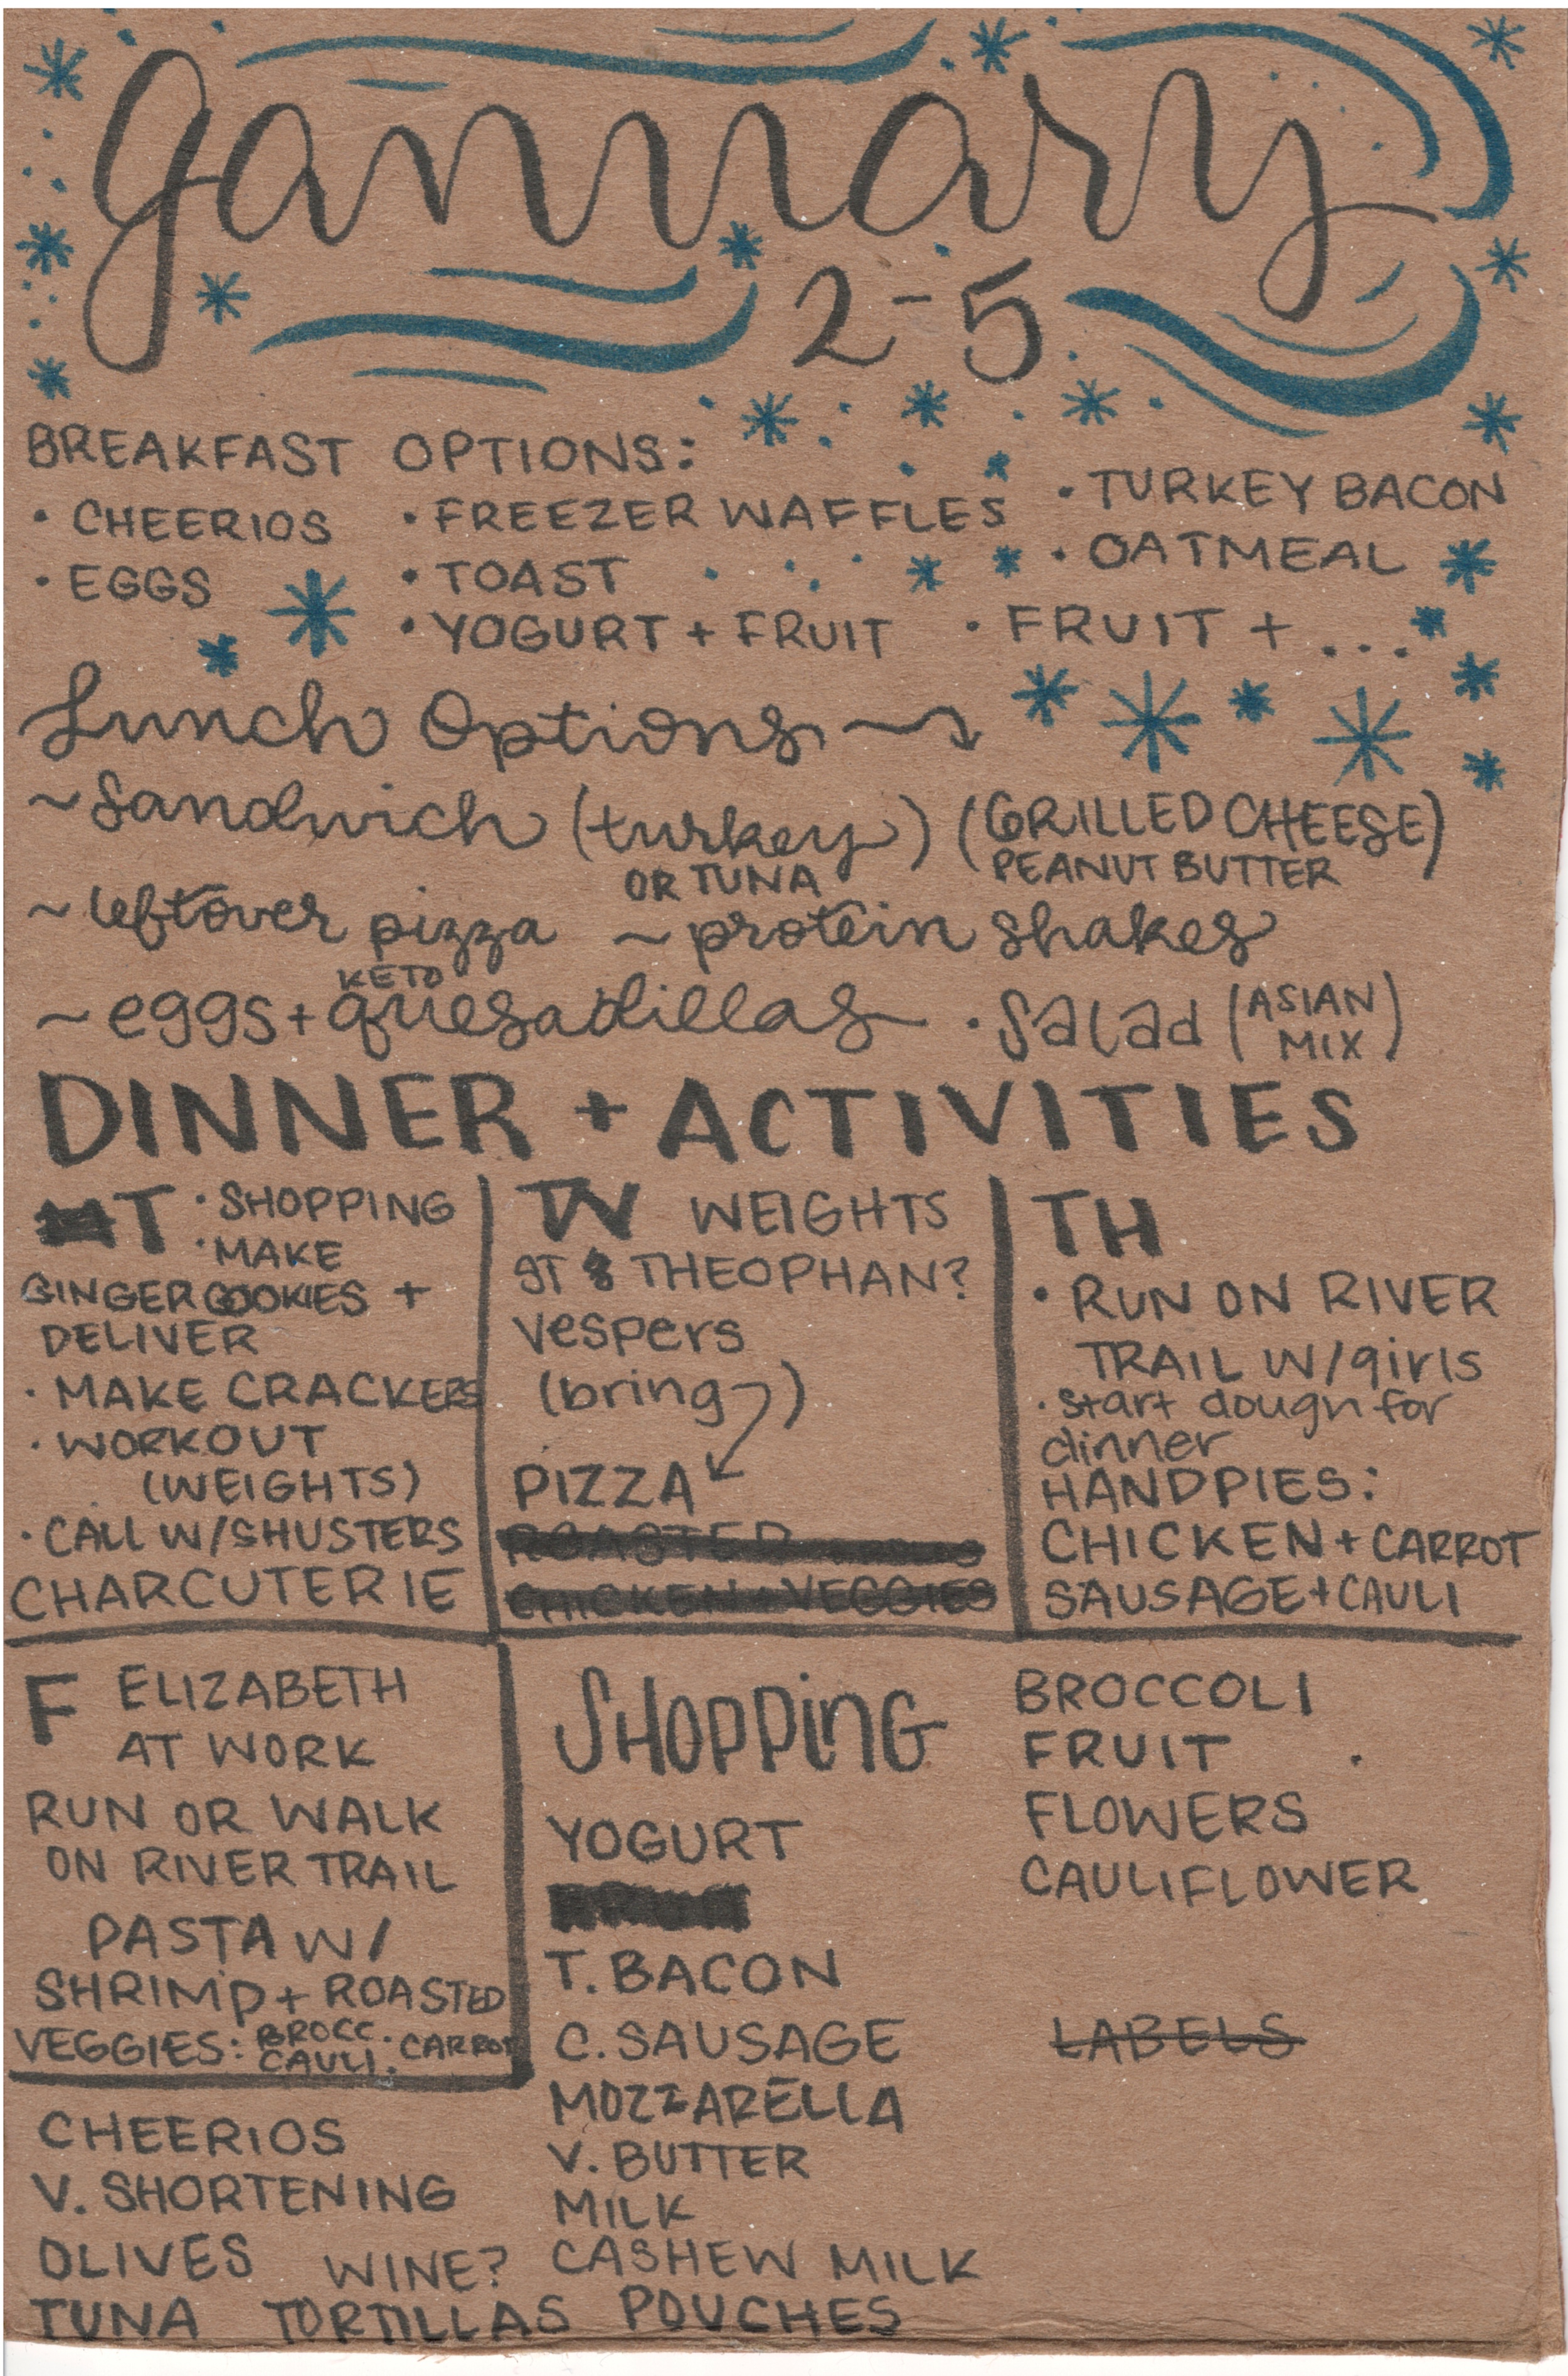 January
2-5
BREAKFAST OPTIONS:
• CHEERIOS
• EGGS
• FREEZER WAFFLES
• TOAST
• YOGURT + FRUIT
• TURKEY BACON
• OATMEAL
• FRUIT + ...
Lunch Options
~ Sandwich (turkey) (GRILLED CHEESE)
OR TUNA PEANUT BUTTER
~ leftover pizza ~ protein shakes
KETO
~ eggs + quesadillas • Salad (ASIAN MIX)
DINNER + ACTIVITIES
T • SHOPPING
• MAKE
GINGER COOKIES +
DELIVER
• MAKE CRACKERS
• WORKOUT
(WEIGHTS)
• CALL W/SHUSTERS
CHARCUTERIE
W WEIGHTS
ST THEOPHAN?
Vespers
(bring)
PIZZA
ROASTED
CHICKEN + VEGGIES
TH
• RUN ON RIVER
TRAIL W/girls
• start dough for
dinner
HANDPIES:
CHICKEN + CARROT
SAUSAGE + CAULI
F ELIZABETH
AT WORK
RUN OR WALK
ON RIVER TRAIL
PASTA W/
SHRIMP + ROASTED
VEGGIES: BROCC. CARROT
CAULI.
SHOPPiNG
YOGURT
T. BACON
C. SAUSAGE
MOZZARELLA
V. BUTTER
MILK
CASHEW MILK
BROCCOLI
FRUIT
FLOWERS
CAULIFLOWER
LABELS
CHEERIOS
V. SHORTENING
OLIVES WINE?
TUNA TORTILLAS POUCHES